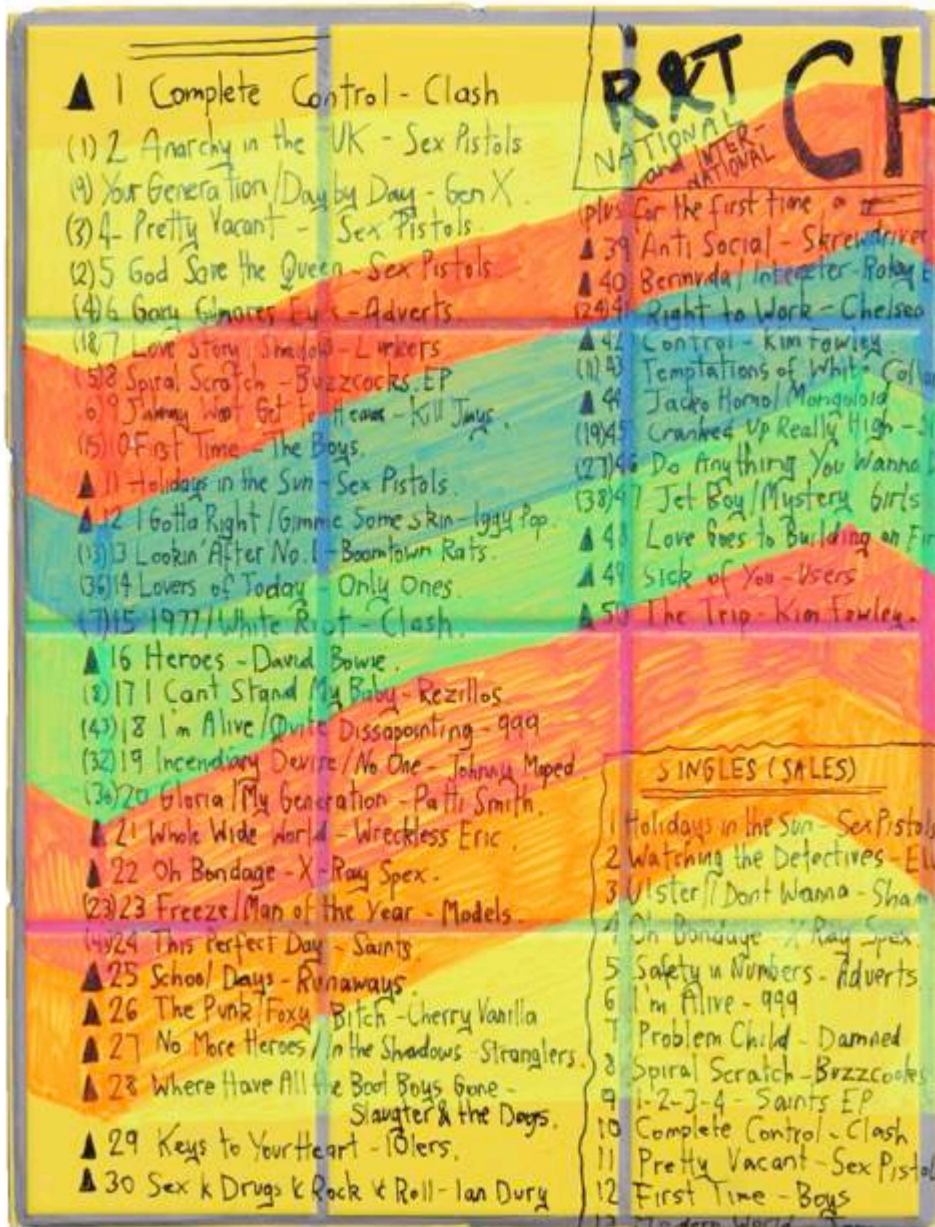 ▲ 1 Complete Control - Clash
(1) 2 Anarchy in the UK - Sex Pistols
(9) Your Generation/Day by Day - Gen X.
(3) 4 Pretty Vacant - Sex Pistols
(2) 5 God Save the Queen - Sex Pistols.
(4) 6 Gary Gilmores Eyes - Adverts.
(18) 7 Love Story Shadow - Lurkers
(5) 8 Spiral Scratch - Buzzcocks. EP
9 Johnny Wont Get to Heaven - Kill Joys.
(15) 10 First Time - The Boys.
▲ 11 Holidays in the Sun - Sex Pistols.
▲ 12 I Gotta Right/Gimme Some skin - Iggy Pop.
(13) 13 Lookin' After No.1 - Boomtown Rats.
(36) 14 Lovers of Today - Only Ones.
(7) 15 1977/White Riot - Clash.
▲ 16 Heroes - David Bowie.
(8) 17 I Cant Stand My Baby - Rezillos.
(43) 18 I'm Alive/Quite Dissapointing - 999
(32) 19 Incendiary Device/No One - Johnny Moped.
(30) 20 Gloria/My Generation - Patti Smith.
▲ 21 Whole Wide World - Wreckless Eric.
▲ 22 Oh Bondage - X-Ray Spex.
(23) 23 Freeze/Man of the Year - Models.
24 This Perfect Day - Saints
▲ 25 School Days - Runaways
▲ 26 The Punk/Foxy Bitch - Cherry Vanilla
▲ 27 No More Heroes/In the Shadows - Stranglers.
▲ 28 Where Have All the Boot Boys Gone -
Slaugter & the Dogs.
▲ 29 Keys to Your Heart - 101ers.
▲ 30 Sex & Drugs & Rock & Roll - Ian Dury
R&T
NATIONAL
and INTER-
NATIONAL
CH
(plus for the first time a
▲ 39 Anti Social - Skrewdriver
▲ 40 Bermuda/Interpreter - Roky E
(24) 41 Right to Work - Chelsea
▲ 42 Control - Kim Fowley
(11) 43 Temptations of White Colla
▲ 44 Jocko Homo/Mongoloid
(19) 45 Cranked Up Really High - Sl
(27) 46 Do Anything You Wanna D
(38) 47 Jet Boy/Mystery Girls
▲ 48 Love Goes to Building on Fir
▲ 49 Sick of You - Users
▲ 50 The Trip - Kim Fowley.
SINGLES (SALES)
1 Holidays in the Sun - Sex Pistols
2 Watching the Detectives - El
3 Ulster/Dont Wanna - Sham
4 Oh Bondage - X Ray Spex.
5 Safety in Numbers - Adverts
6 I'm Alive - 999
7 Problem Child - Damned
8 Spiral Scratch - Buzzcocks
9 1-2-3-4 - Saints EP
10 Complete Control - Clash
11 Pretty Vacant - Sex Pistol
12 First Time - Boys
13 Modern World